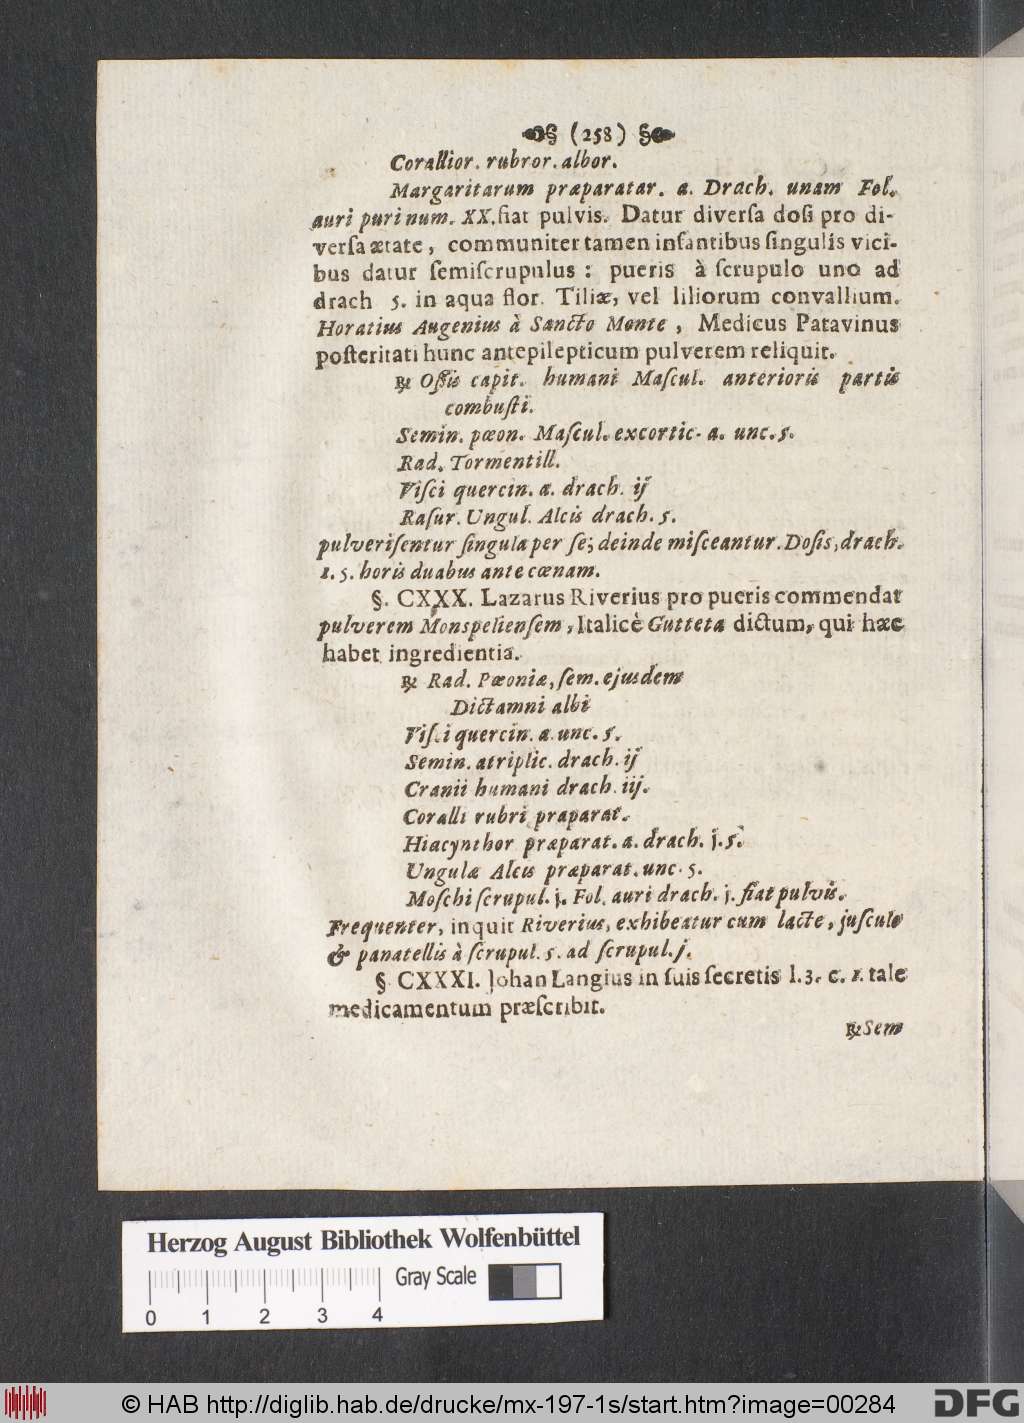 (258)
Corallior. rubror. albor.
Margaritarum præparatar. a. Drach. unam Fol.
auri puri num. XX. fiat pulvis. Datur diversa dosi pro di-
versa ætate, communiter tamen infantibus singulis vici-
bus datur semiscrupulus: pueris à scrupulo uno ad
drach ſ. in aqua flor. Tiliæ, vel liliorum convallium.
Horatius Augenius à Sancto Monte, Medicus Patavinus
posteritati hunc antepilepticum pulverem reliquit.
℞ Oſſis capit. humani Maſcul. anterioris partis
combuſti.
Semin. pæon. Maſcul. excortic. a. unc. ſ.
Rad. Tormentill.
Viſci quercin. a. drach. ij
Raſur. Ungul. Alcis drach. ſ.
pulveriſentur ſingula per ſe; deinde miſceantur. Doſis, drach.
1. ſ. horis duabus ante cœnam.
§. CXXX. Lazarus Riverius pro pueris commendat
pulverem Monspelienſem, Italicè Gutteta dictum, qui hæc
habet ingredientia.
℞ Rad. Pæoniæ, ſem. ejusdem
Dictamni albi
Viſci quercin. a. unc. ſ.
Semin. atriplic. drach. ij
Cranii humani drach. iij.
Coralli rubri præparat.
Hiacynthor præparat. a. drach. j. ſ.
Ungulæ Alcis præparat. unc. ſ.
Moſchi ſcrupul. j. Fol. auri drach. j. fiat pulvis.
Frequenter, inquit Riverius, exhibeatur cum lacte, juſculo
& panatellis à ſcrupul. ſ. ad ſcrupul. j.
§ CXXXI. Johan Langius in ſuis ſecretis l. 3. c. 1. tale
medicamentum præſcribit.
℞ Sem
Herzog August Bibliothek Wolfenbüttel
Gray Scale
0 1 2 3 4
© HAB http://diglib.hab.de/drucke/mx-197-1s/start.htm?image=00284
DFG